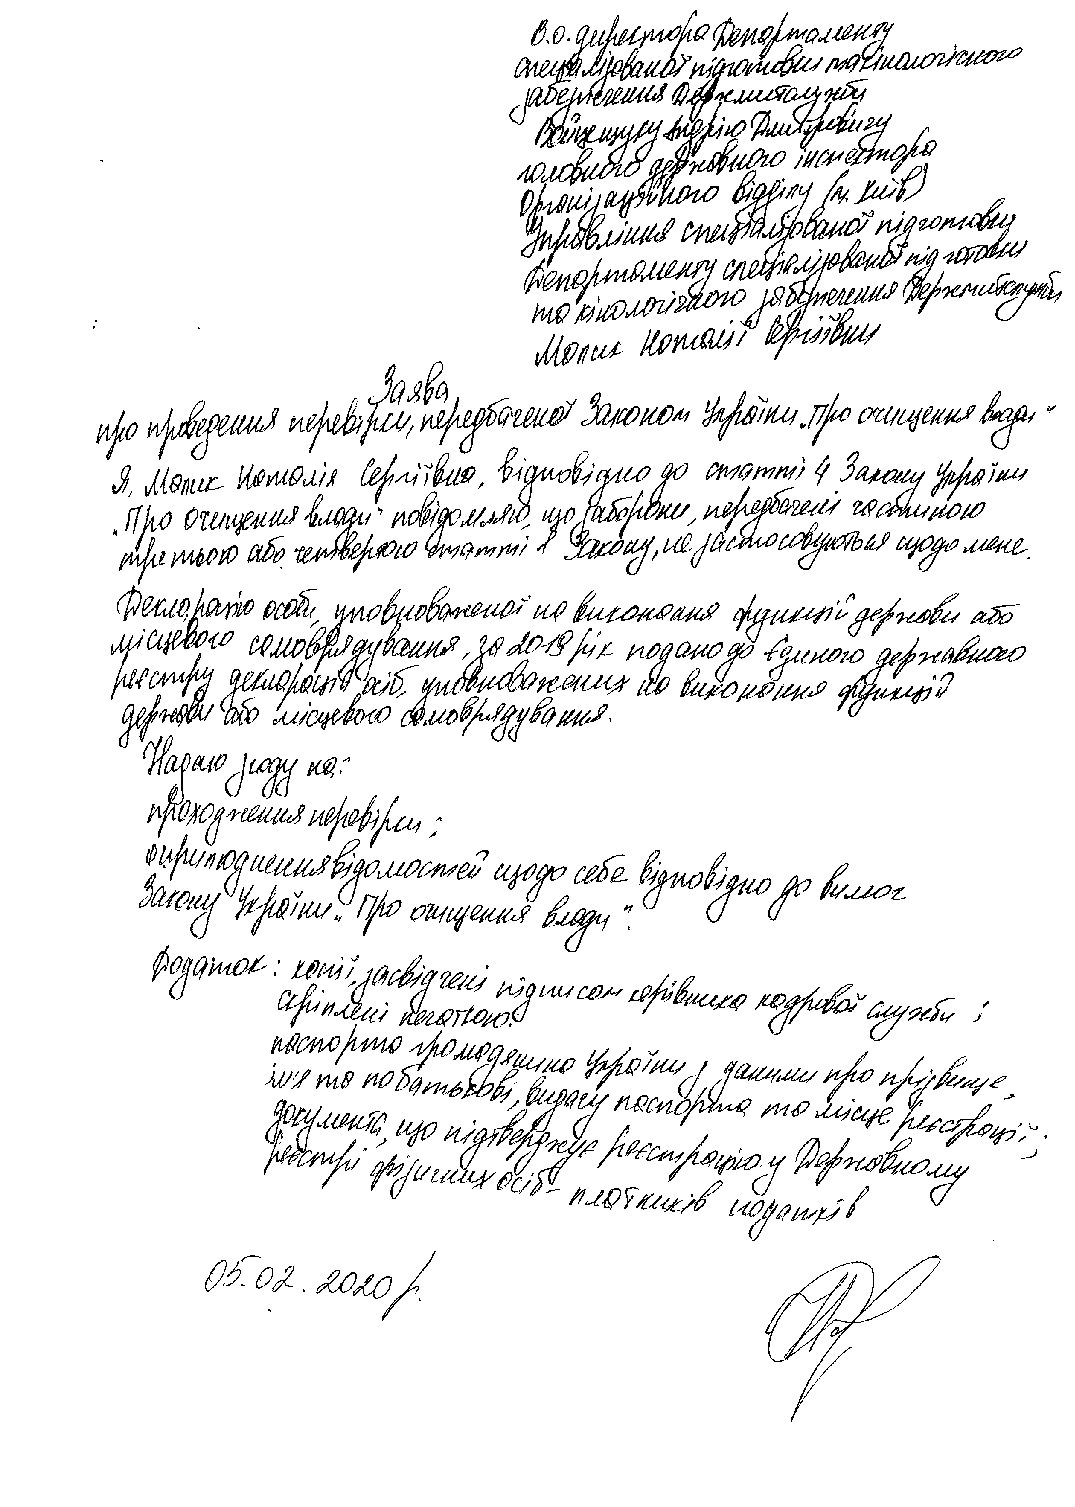 В.о. директора Департаменту
спеціалізованої підготовки та кінологічного
забезпечення Держмитслужби
Войцещуку Андрію Дмитровичу
головного державного інспектора
Організаційного відділу (м. Київ)
Управління спеціалізованої підготовки
Департаменту спеціалізованої підготовки
та кінологічного забезпечення Держмитслужби
Мапик Наталії Сергіївни
Заява
про проведення перевірки, передбаченої Законом України „Про очищення влади"
Я, Мапик Наталія Сергіївна, відповідно до статті 4 Закону України
„Про очищення влади" повідомляю, що заборони, передбачені частиною
третьою або четвертою статті 1 Закону, не застосовуються щодо мене.
Декларацію особи, уповноваженої на виконання функцій держави або
місцевого самоврядування, за 2019 рік подано до Єдиного державного
реєстру декларацій осіб, уповноважених на виконання функцій
держави або місцевого самоврядування.
Надаю згоду на:
проходження перевірки;
оприлюднення відомостей щодо себе відповідно до вимог
Закону України „Про очищення влади".
Додаток: копії, засвідчені підписом керівника кадрової служби і
скріплені печаткою:
паспорта громадянина України з даними про прізвище,
ім'я та по батькові, видачу паспорта та місце реєстрації;
документа, що підтверджує реєстрацію у Державному
реєстрі фізичних осіб - платників податків
05.02.2020 р.